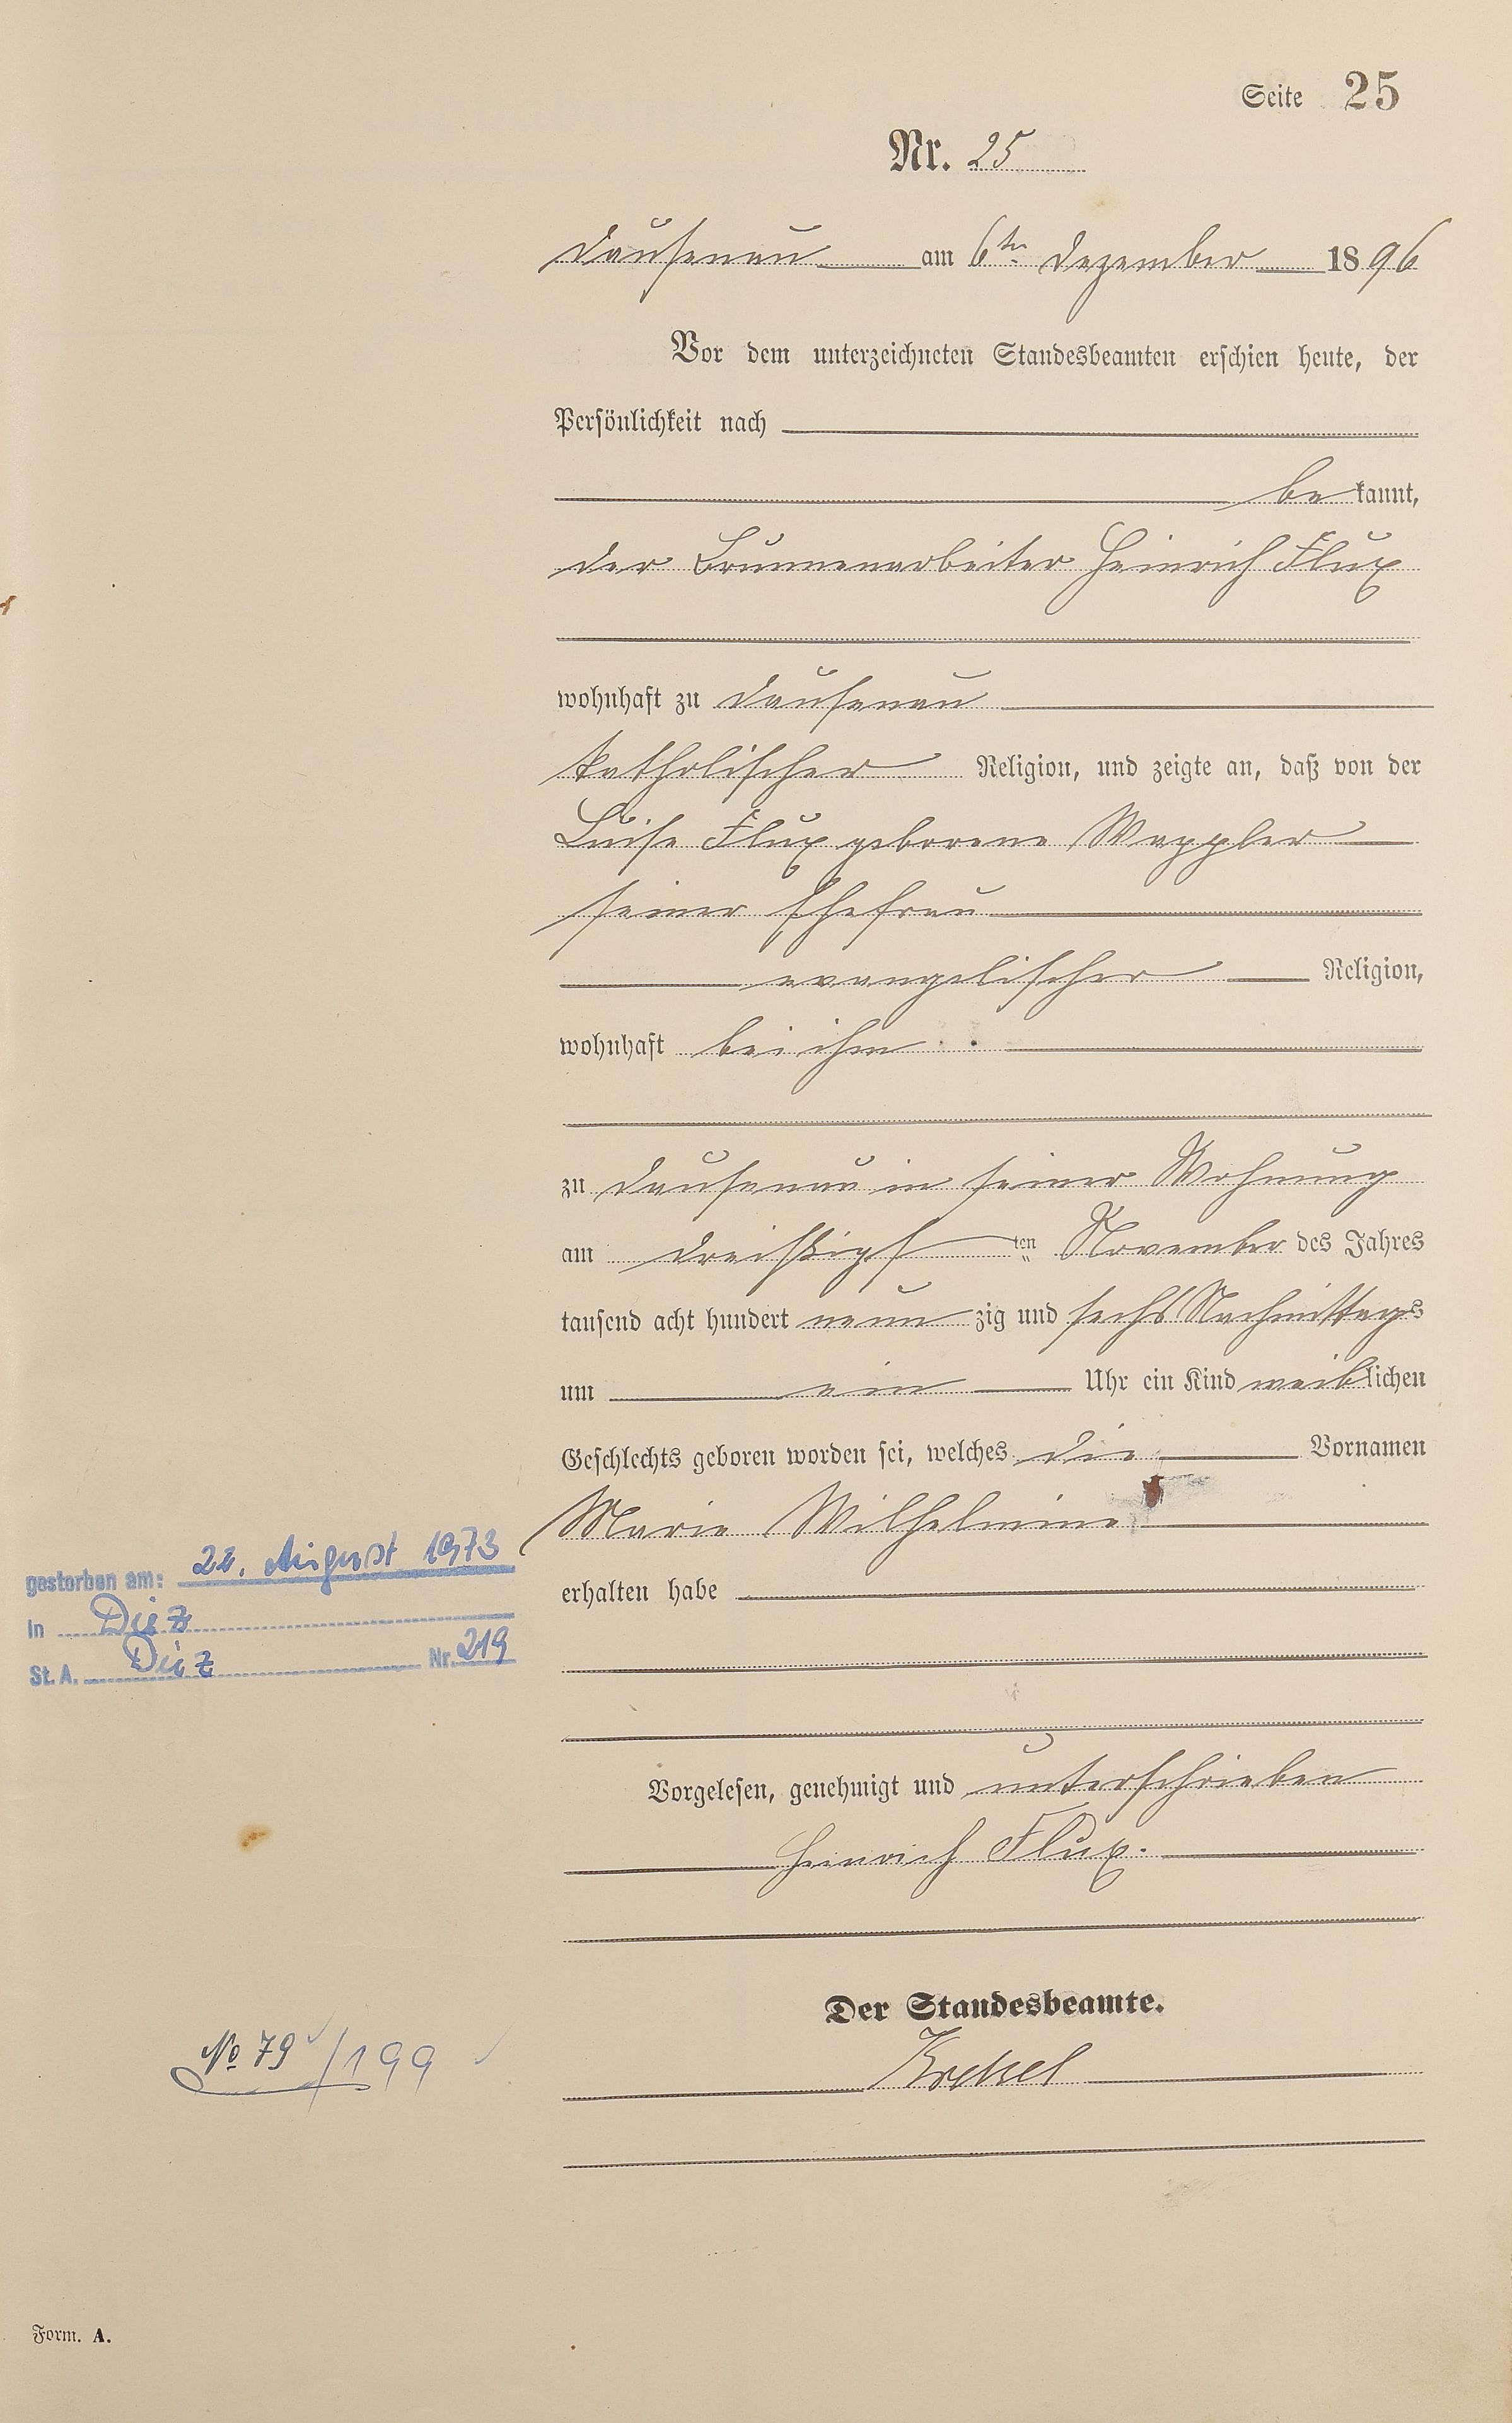 Seite 25
Nr. 25
Dausenau am 6ten Dezember 1896
Vor dem unterzeichneten Standesbeamten erschien heute, der
Persönlichkeit nach
bekannt,
der Brunnenarbeiter Heinrich Flux
wohnhaft zu Dausenau
katholischer Religion, und zeigte an, daß von der
Luise Flux geborene Wappler
seiner Ehefrau
evangelischer Religion,
wohnhaft bei ihm
zu Dausenau in seiner Wohnung
am dreißigsten November des Jahres
tausend acht hundert neunzig und sechs Nachmittags
um ein Uhr ein Kind weiblichen
Geschlechts geboren worden sei, welches die Vornamen
Marie Wilhelmine
erhalten habe
gestorben am: 22. August 1973
In Diez
St. A. Diez Nr. 219
Vorgelesen, genehmigt und unterschrieben
Heinrich Flux.
Der Standesbeamte.
No 79/199
Form. A.